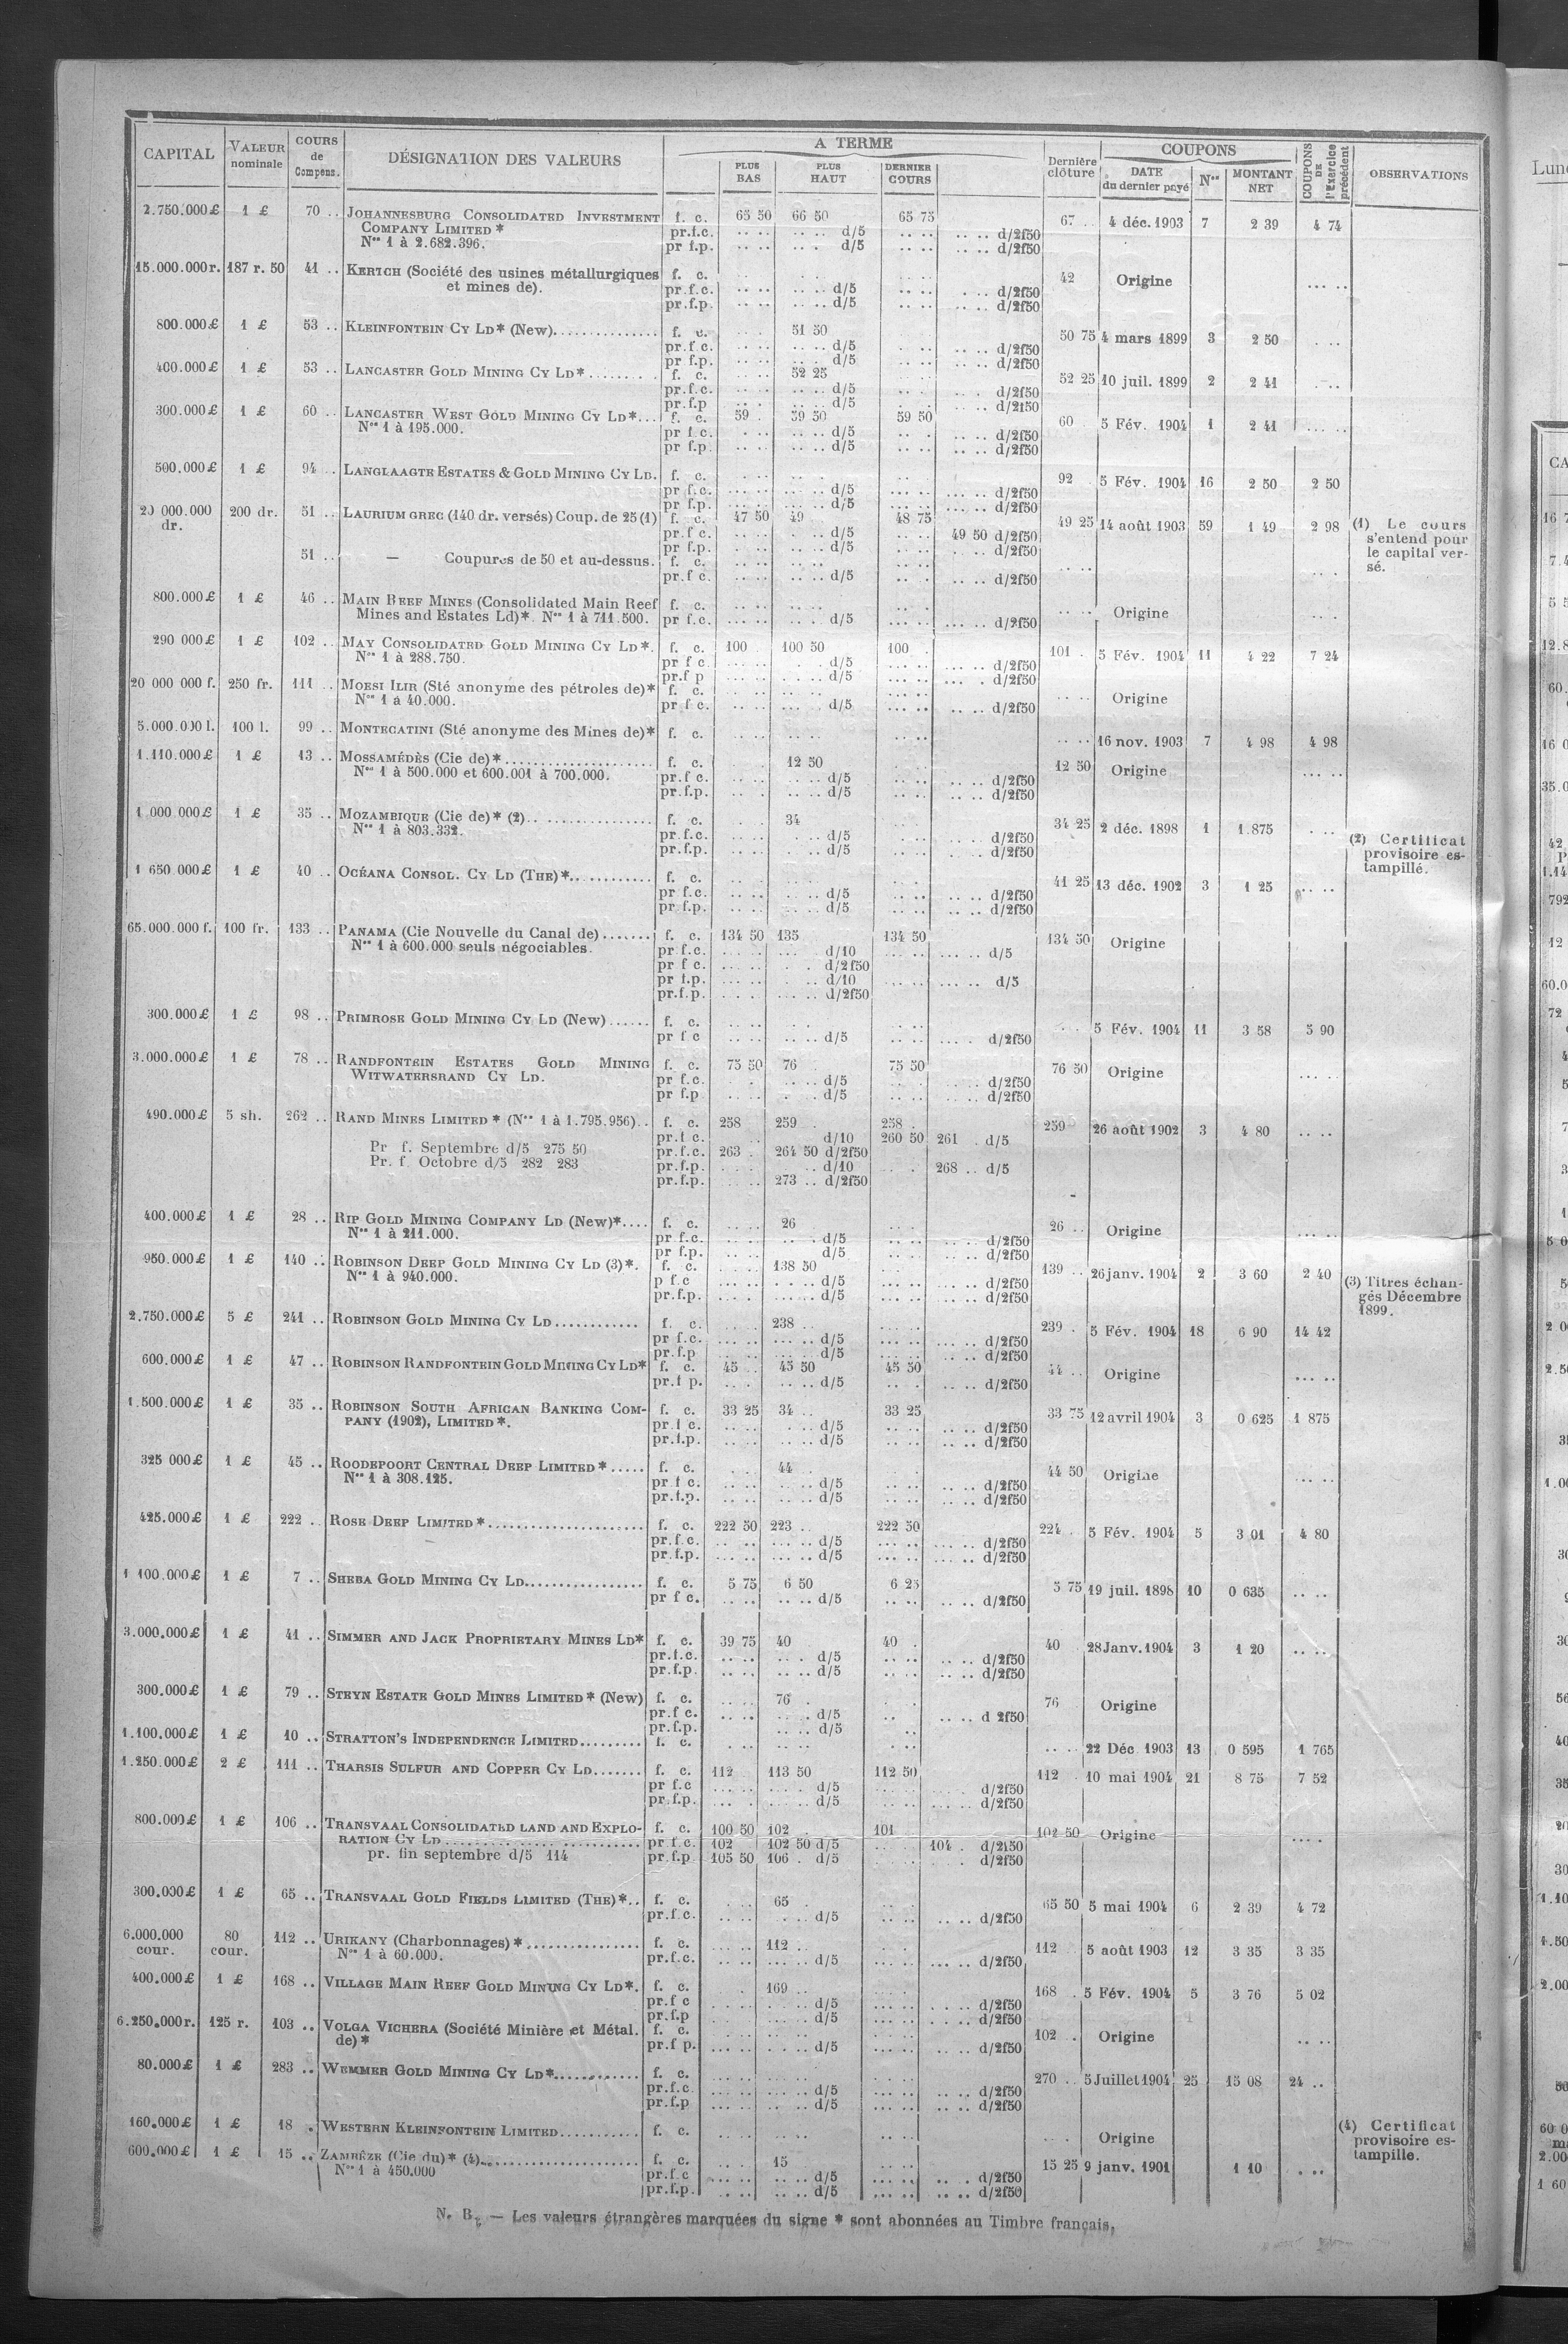 CAPITAL VALEUR nominale COURS de Compens. DÉSIGNATION DES VALEURS A TERME PLUS BAS PLUS HAUT DERNIER COURS Dernière clôture COUPONS DATE du dernier payé Nos MONTANT NET COUPONS DE l'Exercice précédent OBSERVATIONS
2.750.000£ 1 £ 70 .. JOHANNESBURG CONSOLIDATED INVESTMENT f. c. 65 50 66 50 65 75 67 .. 4 déc. 1903 7 2 39 4 74
COMPANY LIMITED * pr.f.c. .. .. .. .. d/5 .. .. .. .. d/2f50
Nos 1 à 2.682.396. pr f.p. .. .. .. . d/5 .. .. .. .. d/2f50
15.000.000r. 187 r. 50 41 .. KERTCH (Société des usines métallurgiques f. c. 42 Origine ... ..
et mines de). pr.f.c. .. .. .. .. d/5 .. .. . .. d/2f50
pr.f.p. .. .. .. .. d/5 .. .. .. .. d/2f50
800.000£ 1 £ 53 .. KLEINFONTEIN CY LD* (New).............. f. c. 51 50 50 75 4 mars 1899 3 2 50
pr.f c. .. .. .. .. d/5 .. .. .. .. d/2f50
pr f.p. .. .. .. . d/5 .. .. .. .. d/2f50
400.000£ 1 £ 53 .. LANCASTER GOLD MINING CY LD*........ f. c. 52 25 52 25 10 juil. 1899 2 2 41
pr.f.c. .. .. .. .. d/5 d/2f50
pr.f.p .. .. .. .. d/5 .. .. d/2f50
300.000£ 1 £ 60 .. LANCASTER WEST GOLD MINING CY LD*... f. c. 59 . 59 50 59 50 60 5 Fév. 1904 1 2 41 ... ..
Nos 1 à 195.000. pr f c. .. .. .. d/5 .. . .. .. d/2f50
pr f.p. .. .. .. .. d/5 .. .. .. .. d/2f50
500.000£ 1 £ 94 .. LANGLAAGTE ESTATES & GOLD MINING CY LD. f. c. 92 5 Fév. 1904 16 2 50 2 50
pr f.c. ... .. ... .. d/5 ... .. ... .. d/2f50
pr f.p. ... .. ... .. d/5 ... .. ... .. d/2f50
20 000.000 dr. 200 dr. 51 .. LAURIUM GREC (140 dr. versés) Coup. de 25 (1) f. c. 47 50 49 48 75 49 25 14 août 1903 59 1 49 2 98 (1) Le cours
pr.f c. .. .. . .. d/5 .. .. 49 50 d/2f50 s'entend pour
pr f.p. .. .. .. .. d/5 .. .. d/2f50 le capital ver-
51 .. — Coupures de 50 et au-dessus. f. c. sé.
pr.f c. .. .. .. .. d/5 .. . .. .. d/2f50
800.000£ 1 £ 46 .. MAIN REEF MINES (Consolidated Main Reef f. c. .. .. Origine
Mines and Estates Ld)*. Nos 1 à 711.500. pr f.c. ... .. .. .. d/5 ... .. ... .. d/2f50
290 000£ 1 £ 102 .. MAY CONSOLIDATED GOLD MINING CY LD*. f. c. 100 . 100 50 100 . 101 . 5 Fév. 1904 11 4 22 7 24
Nos 1 à 288.750. pr f c ... .. . .. d/5 ... .. ... .. d/2f50
pr.f p ... .. .. .. d/5 ... .. ... . d/2f50
20 000 000 f. 250 fr. 111 .. MOESI ILIR (Sté anonyme des pétroles de)* f. c. Origine
Nos 1 à 40.000. pr f c. .. .. .. .. d/5 .. .. .. .. d/2f50
5.000.000 l. 100 l. 99 .. MONTECATINI (Sté anonyme des Mines de)* f. c. .. .. .. .. .. .. .. .. 16 nov. 1903 7 4 98 4 98
1.110.000£ 1 £ 13 .. MOSSAMÉDÈS (Cie de)*.................... f. c. 12 50 12 50 Origine ... ..
Nos 1 à 500.000 et 600.001 à 700.000. pr.f c. .. . .. .. d/5 .. .. .. .. d/2f50
pr.f.p. .. . .. .. d/5 .. .. .. .. d/2f50
1.000 000£ 1 £ 35 .. MOZAMBIQUE (Cie de)* (2)................. f. c. 34 34 25 2 déc. 1898 1 1.875
Nos 1 à 803.332. pr.f.c. .. .. . .. d/5 .. .. d/2f50 (2) Certificat
pr.f.p. .. .. . .. d/5 .. .. .. . d/2f50 provisoire es-
1 650 000£ 1 £ 40 .. OCÉANA CONSOL. CY LD (THE)*............ f. c. 41 25 13 déc. 1902 3 1 25 .. .. tampillé.
pr f.c. .. .. .. .. d/5 .. .. .. .. d/2f50
pr.f.p. .. .. .. .. d/5 .. .. .. .. d/2f50
65.000.000 f. 100 fr. 133 .. PANAMA (Cie Nouvelle du Canal de)....... f. c. 134 50 135 134 50 134 50 Origine
Nos 1 à 600.000 seuls négociables. pr f.c. ... .. ... d/10 ... .. ... .. d/5
pr f c. ... .. . . d/2f50
pr f.p. ... .. . .. d/10 ... .. ... .. d/5
pr.f.p. . .. . ... .. d/2f50
300.000£ 1 £ 98 .. PRIMROSE GOLD MINING CY LD (New)...... f. c. 5 Fév. 1904 11 3 58 5 90
pr f c .. .. .. .. d/5 .. .. d/2f50
3.000.000£ 1 £ 78 .. RANDFONTEIN ESTATES GOLD MINING f. c. 75 50 76 . 75 50 76 50 Origine ... ..
WITWATERSRAND CY LD. pr f.c. . .. . .. d/5 .. .. .. d/2f50
pr f.p .. .. . .. d/5 .. .. .. .. d/2f50
490.000£ 5 sh. 262 .. RAND MINES LIMITED * (Nos 1 à 1.795.956).. f. c. 258 259 . 258 . 259 26 août 1902 3 4 80 .. ..
pr.f c. d/10 260 50 261 . d/5
Pr f. Septembre d/5 275 50 pr.f.c. 263 . 264 50 d/2f50
Pr. f Octobre d/5 282 283 pr.f.p. .. d/10 . . 268 .. d/5
pr.f.p. 273 .. d/2f50
400.000£ 1 £ 28 .. RIP GOLD MINING COMPANY LD (New)*.... f. c. .. .. 26 26 .. Origine ... ..
Nos 1 à 211.000. pr f.c. .. .. .. . d/5 .. .. .. .. d/2f50
pr f.p. .. .. d/5 .. .. .. .. d/2f50
950.000£ 1 £ 140 .. ROBINSON DEEP GOLD MINING CY LD (3)*. f. c. 138 50 139 .. 26 janv. 1904 2 3 60 2 40 (3) Titres échan-
Nos 1 à 940.000. p f.c ... .. . .. d/5 ... .. ... .. d/2f50 gés Décembre
pr.f.p. ... .. ... .. d/5 ... .. ... .. d/2f50 1899.
2.750.000£ 5 £ 241 .. ROBINSON GOLD MINING CY LD............ f. c. 238 .. 239 . 5 Fév. 1904 18 6 90 14 42
pr f.c. ... .. ... .. d/5 ... .. ... .. d/2f50
pr.f.p ... .. ... .. d/5 ... .. ... .. d/2f50
600.000£ 1 £ 47 .. ROBINSON RANDFONTEIN GOLD MINING CY LD* f. c. 45 .. 45 50 45 50 44 .. Origine ... ..
pr.f p. .. . .. .. d/5 .. . .. .. d/2f50
1.500.000£ 1 £ 35 .. ROBINSON SOUTH AFRICAN BANKING COM- f. c. 33 25 34 .. 33 25 33 75 12 avril 1904 3 0 625 1 875
PANY (1902), LIMITED*. pr.f c. .. .. . .. d/5 .. .. .. .. d/2f50
pr.f.p. .. .. .. .. d/5 .. .. .. .. d/2f50
325 000£ 1 £ 45 .. ROODEPOORT CENTRAL DEEP LIMITED*..... f. c. 44 44 50 Origine ... ..
Nos 1 à 308.125. pr f c. .. .. .. .. d/5 .. .. .. .. d/2f50
pr.f.p. .. .. .. .. d/5 .. .. .. .. d/2f50
425.000£ 1 £ 222 .. ROSE DEEP LIMITED*...................... f. c. 222 50 223 .. 222 50 224 . 5 Fév. 1904 5 3 01 4 80
pr.f c. .. .. ... .. d/5 ... .. ... .. d/2f50
pr.f.p. ... .. ... .. d/5 ... .. ... .. d/2f50
1 100.000£ 1 £ 7 .. SHEBA GOLD MINING CY LD................. f. c. 5 75 6 50 6 25 5 75 19 juil. 1898 10 0 635 .. ..
pr f c. .. .. .. .. d/5 .. .. .. .. d/2f50
3.000.000£ 1 £ 41 .. SIMMER AND JACK PROPRIETARY MINES LD* f. c. 39 75 40 40 . 40 28 Janv. 1904 3 1 20 .. ..
pr.f.c. .. .. .. . d/5 .. .. .. .. d/2f50
pr.f.p. .. .. .. .. d/5 .. .. .. .. d/2f50
300.000£ 1 £ 79 .. STEYN ESTATE GOLD MINES LIMITED* (New) f. c. .. .. 76 . 76 Origine
pr.f c. .. .. .. .. d/5 .. .. .. d 2f50
pr.f.p. .. .. d/5
1.100.000£ 1 £ 10 .. STRATTON'S INDEPENDENCE LIMITED......... f. c. .. .. .. .. .. .. 22 Déc. 1903 13 0 595 1 765
1.250.000£ 2 £ 111 .. THARSIS SULFUR AND COPPER CY LD....... f. c. 112 113 50 112 50 112 . 10 mai 1904 21 8 75 7 52
pr f.c ... .. ... . d/5 ... .. d/2f50
pr.f.p. ... . ... .. d/5 ... .. ... .. d/2f50
800.000£ 1 £ 106 .. TRANSVAAL CONSOLIDATED LAND AND EXPLO- f. c. 100 50 102 . 101 102 50 Origine
RATION CY LD............................ pr f.c. 102 102 50 d/5 104 . d/2f50
pr. fin septembre d/5 114 pr.f.p 105 50 106 . d/5 . d/2f50
300.000£ 1 £ 65 .. TRANSVAAL GOLD FIELDS LIMITED (THE)*.. f. c. 65 65 50 5 mai 1904 6 2 39 4 72
pr.f.c. .. .. . .. d/5 .. .. .. .. d/2f50
6.000.000 cour. 80 cour. 112 .. URIKANY (Charbonnages)*................ f. c. 112 .. 112 5 août 1903 12 3 35 3 35
Nos 1 à 60.000. pr.f.c. ... .. ... .. d/5 ... .. ... .. d/2f50
400.000£ 1 £ 168 .. VILLAGE MAIN REEF GOLD MINING CY LD*. f. c. 169 .. 168 . 5 Fév. 1904 5 3 76 5 02
pr.f c .. .. .. .. d/5 ... .. ... .. d/2f50
pr.f.p ... .. ... .. d/5 ... .. ... .. d/2f50
6.250.000r. 125 r. 103 .. VOLGA VICHERA (Société Minière et Métal. f. c. 102 .. Origine
de)* pr.f p. ... .. ... .. d/5 ... .. ... .. d/2f50
80.000£ 1 £ 283 .. WEMMER GOLD MINING CY LD*............ f. c. 270 .. 5 Juillet 1904 25 15 08 24 ..
pr.f.c. ... .. ... .. d/5 ... .. ... .. d/2f50
pr.f.p ... .. ... .. d/5 ... .. ... .. d/2f50
160.000£ 1 £ 18 . WESTERN KLEINFONTEIN LIMITED........... f. c. .. .. .. .. .. .. Origine (4) Certificat
600.000£ 1 £ 15 .. ZAMBÈZE (Cie du)* (4)...................... f. c. 15 15 25 9 janv. 1901 1 10 . .. provisoire es-
Nos 1 à 450.000 pr.f.c ... .. .. .. d/5 ... .. .. . d/2f50 tampillé.
pr.f.p. .. .. .. .. d/5 ... .. .. .. d/2f50
N. B. — Les valeurs étrangères marquées du signe * sont abonnées au Timbre français.